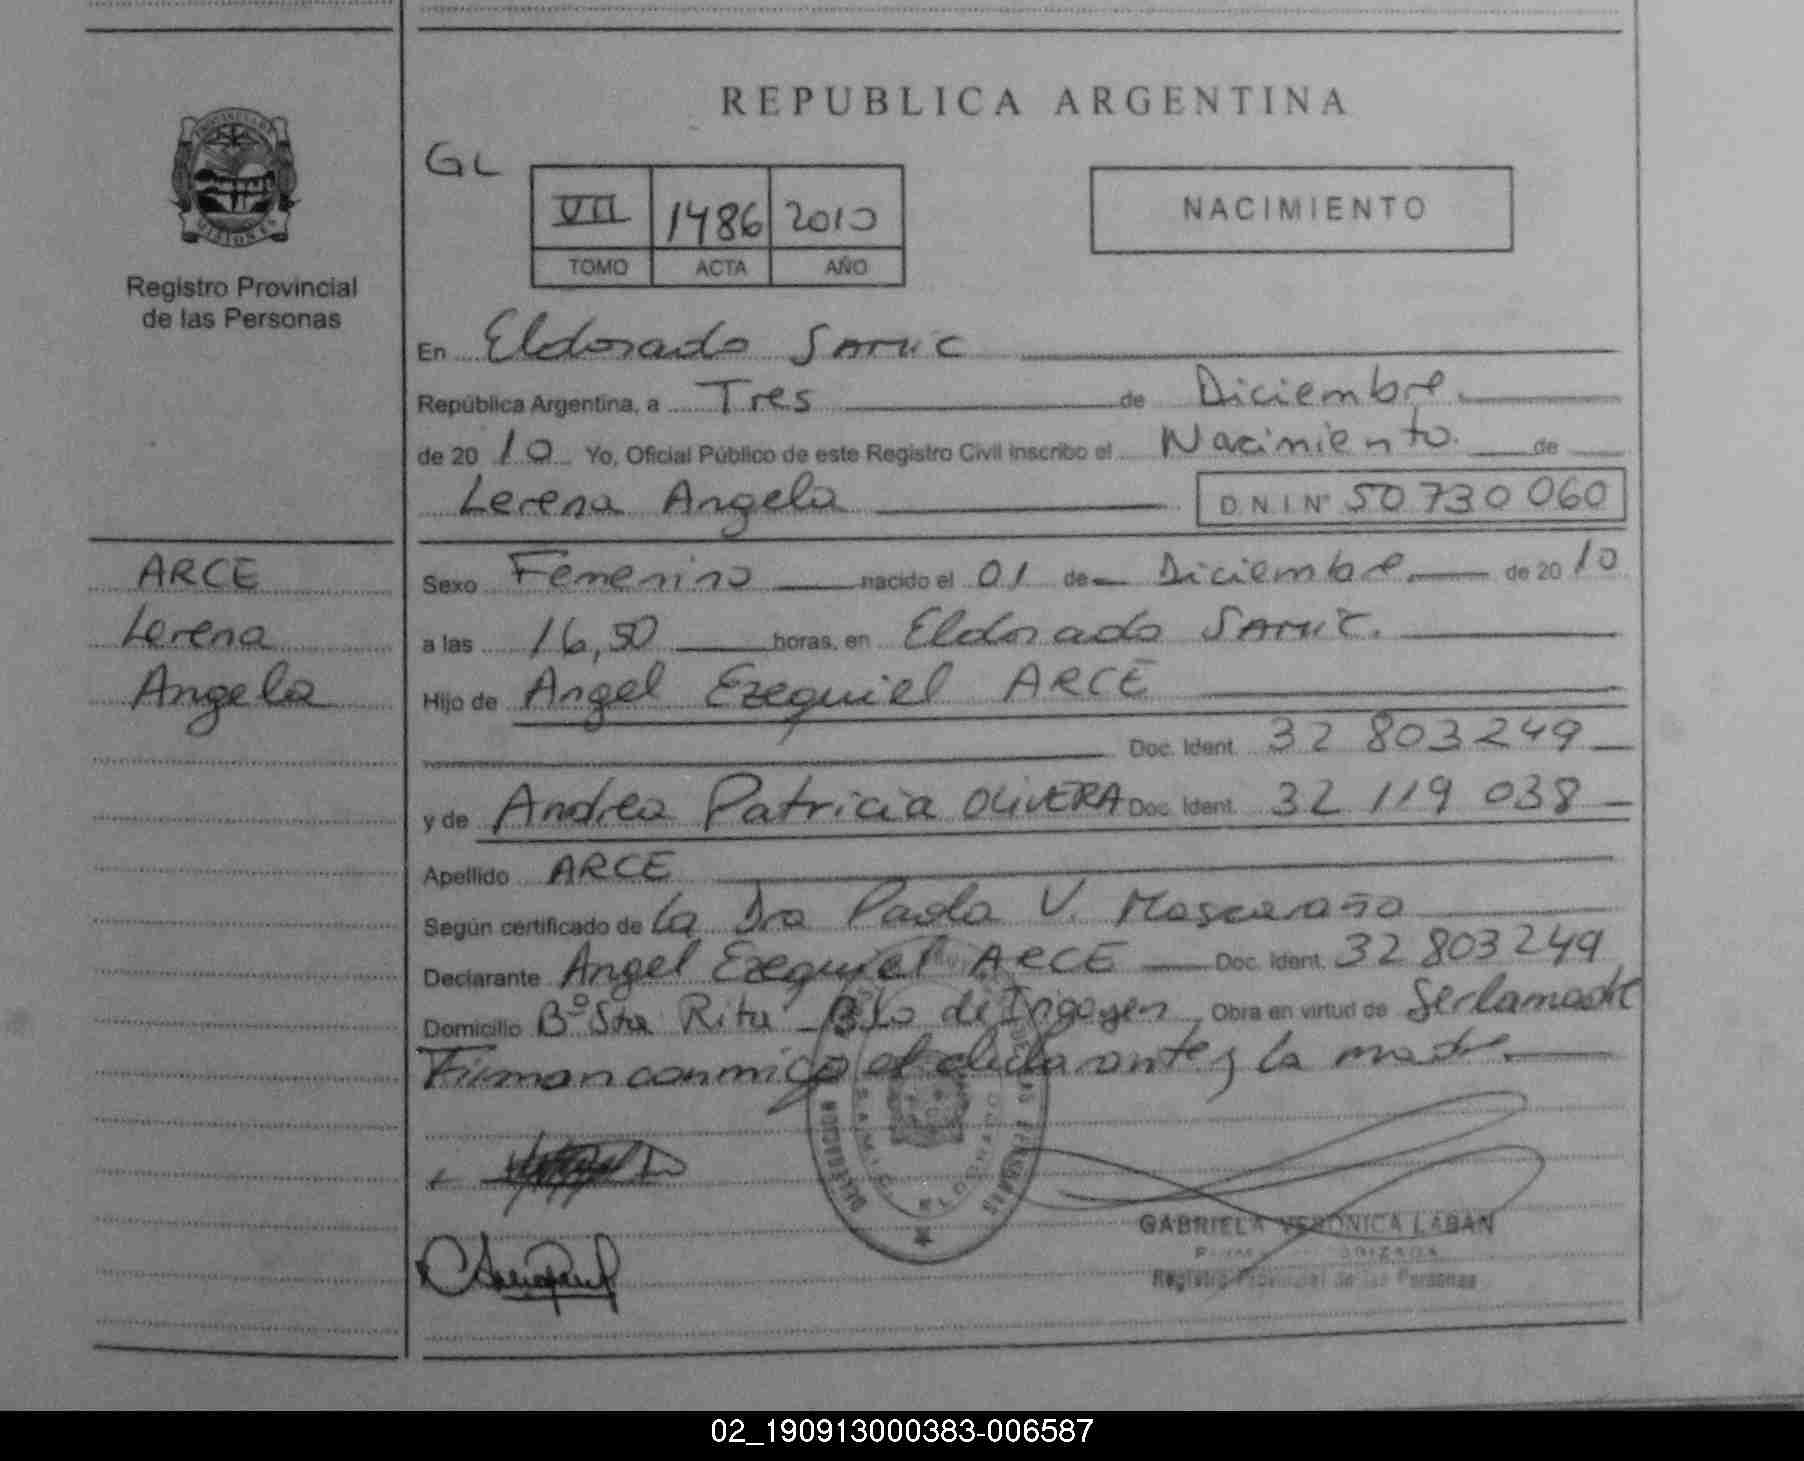 REPUBLICA ARGENTINA
GL
VII 1486 2010
TOMO ACTA AÑO
NACIMIENTO
MISIONES
Registro Provincial
de las Personas
En Eldorado
República Argentina, a Tres de Diciembre
de 2010 Yo, Oficial Público de este Registro Civil inscribo el Nacimiento de
Lerena Angela D.N.I Nº 50 730 060
ARCE
Lerena
Angela
Sexo Femenino nacido el 01 de Diciembre de 2010
a las 16,50 horas, en Eldorado
Hijo de Angel Ezequiel ARCE
Doc. Ident. 32 803 249
y de Andrea Patricia OLIVERA Doc. Ident. 32 119 038
Apellido ARCE
Según certificado de La Dra Paola V.
Declarante Angel Ezequiel ARCE Doc. Ident. 32 803 249
Domicilio Bº Sta Rita Bdo de Irigoyen Obra en virtud de Ser la madre
Firman conmigo el declarante y la madre
DELEGACION
ELDORADO
GABRIELA VERONICA LABAN
Registro Provincial de las Personas
02_190913000383-006587